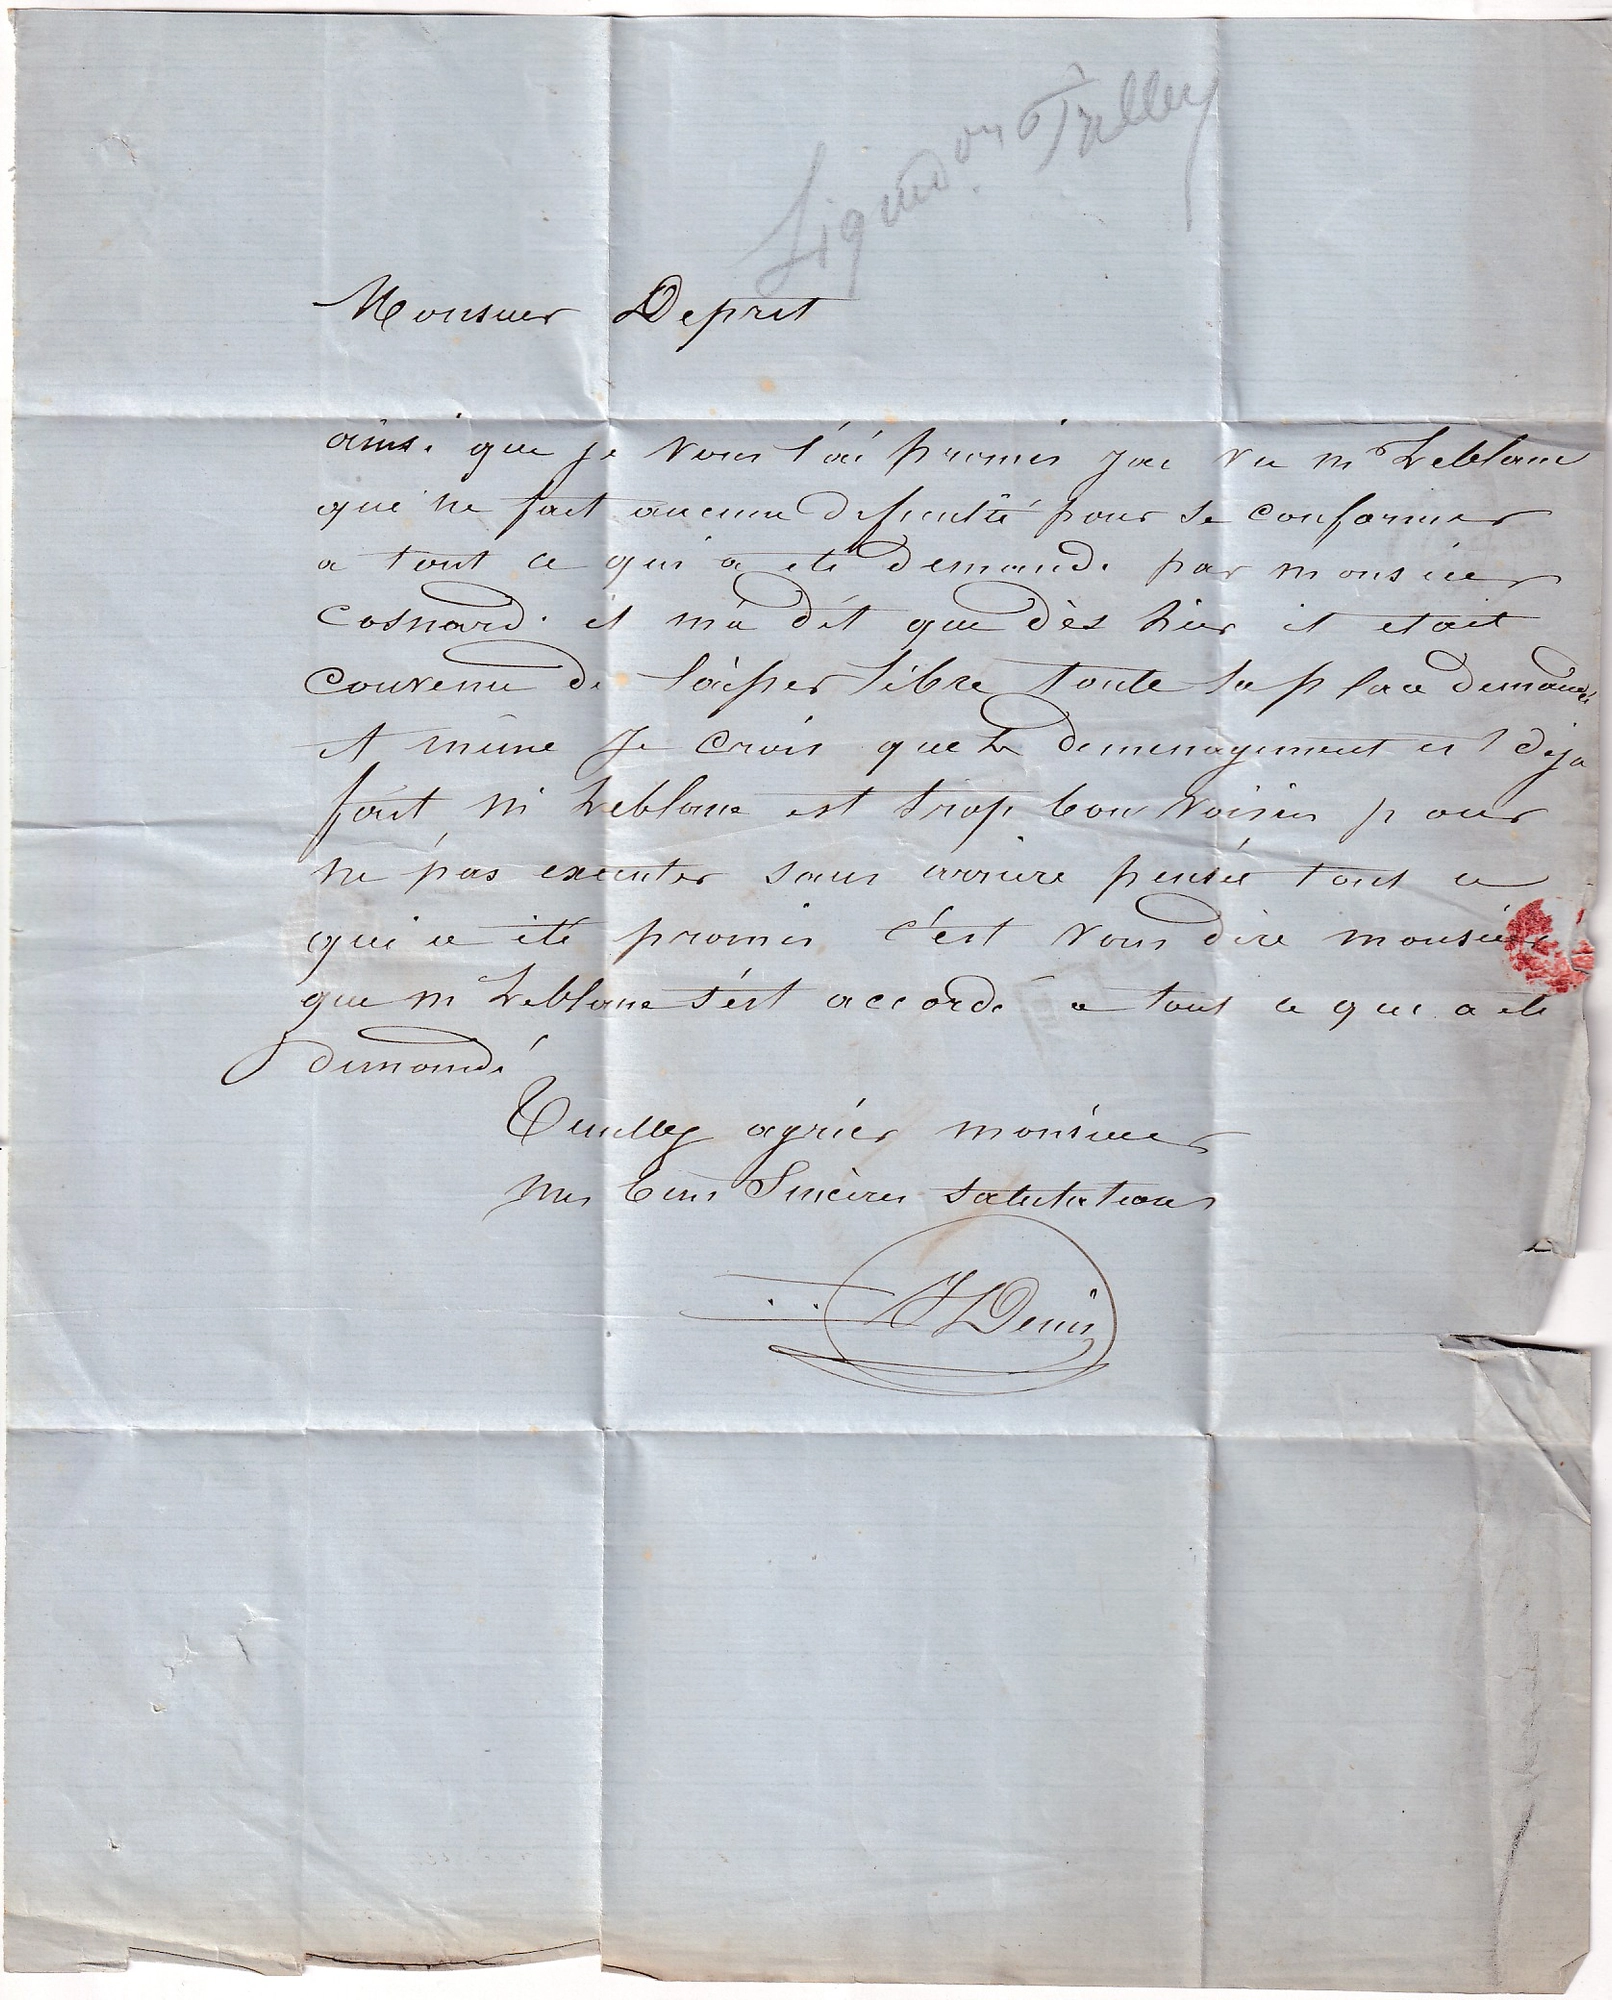 Monsieur Depret
ainsi que je vous l'ai promis jai vu mr Leblanc
qui ne fait aucune dificulté pour se conformer
a tout ce qui a ete demandé par monsieur
Cosnard. il m'a dit que dès hier il etait
convenu de laisser libre toute la place demandé
et même je crois que le demenagement est deja
fait, m Leblanc est trop bon voisin pour
ne pas executer sans arrière pensée tout ce
qui a été promis c'est vous dire monsieur
que m Leblanc s'est accordé a tout ce qui a ete
demandé
Veuillez agréer monsieur
mes bien Sincères salutations
Denis